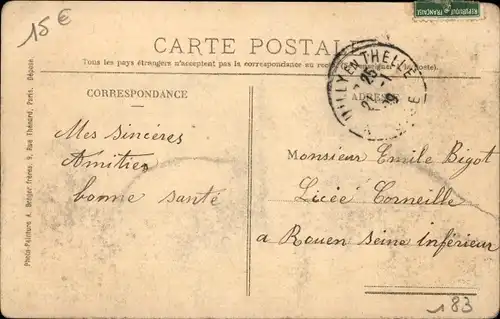 15€
REPUBLIQUE FRANÇAISE
CARTE POSTALE
Tous les pays étrangers n'acceptent pas la correspondance au recto
CORRESPONDANCE
ADRESSE
NEUILLY EN THELLE
25 -1
OISE
Mes sincères
Amitiés
bonne santé
Monsieur Emile Bigot
Licée Corneille
a Rouen Seine Inférieur
Photo-Peinture A. Bréger frères, 9, Rue Thénard, Paris. Déposé.
183